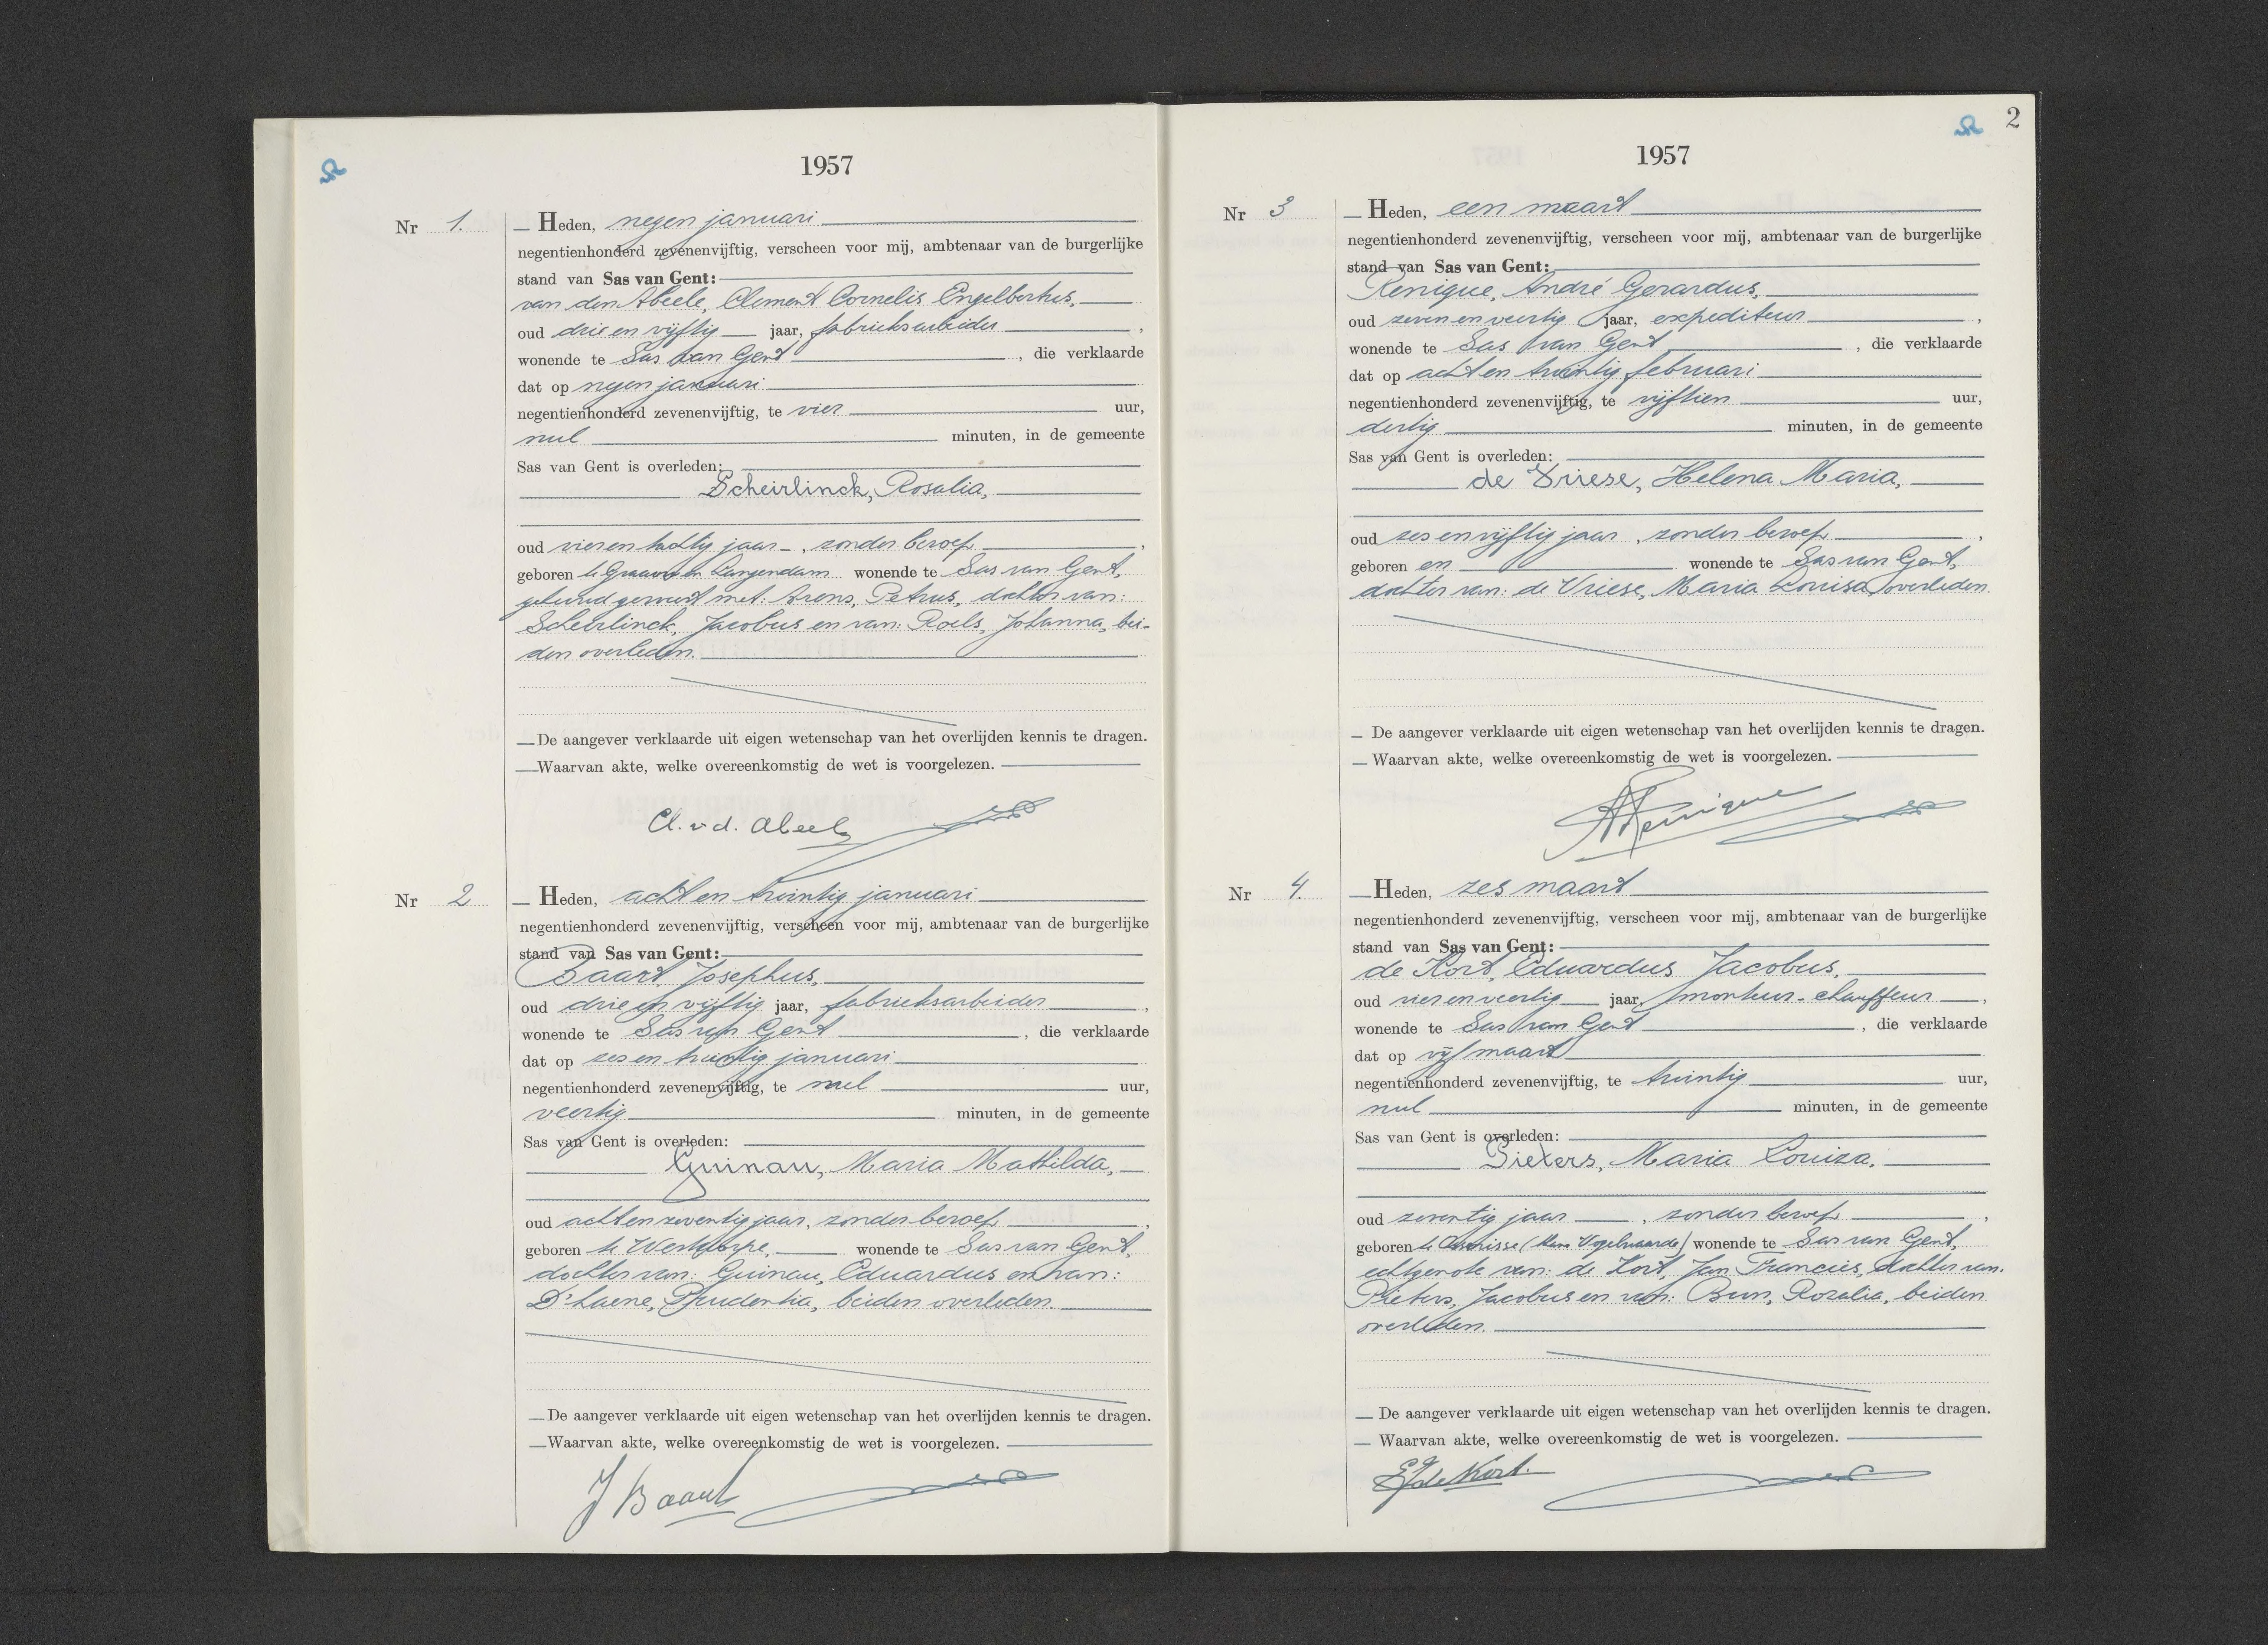 1957
Nr 1.
Heden, negen januari
negentienhonderd zevenenvijftig, verscheen voor mij, ambtenaar van de burgerlijke
stand van Sas van Gent:
van den Abeele, Clement Cornelis Engelbertus,
oud drie en vijftig jaar, fabrieksarbeider,
wonende te Sas van Gent, die verklaarde
dat op negen januari
negentienhonderd zevenenvijftig, te vier uur,
nul minuten, in de gemeente
Sas van Gent is overleden:
Scheirlinck, Rosalia,
oud vier en tachtig jaar, zonder beroep,
geboren te Graauw en Langendam wonende te Sas van Gent,
gehuwd geweest met: Arens, Petrus, dochter van:
Scheirlinck, Jacobus en van: Roels, Johanna, bei-
den overleden.
De aangever verklaarde uit eigen wetenschap van het overlijden kennis te dragen.
Waarvan akte, welke overeenkomstig de wet is voorgelezen.
Cl. v d. Abeele
Nr 2
Heden, acht en twintig januari
negentienhonderd zevenenvijftig, verscheen voor mij, ambtenaar van de burgerlijke
stand van Sas van Gent:
Baart, Josephus,
oud drie en vijftig jaar, fabrieksarbeider,
wonende te Sas van Gent, die verklaarde
dat op zes en twintig januari
negentienhonderd zevenenvijftig, te nul uur,
veertig minuten, in de gemeente
Sas van Gent is overleden:
Guinau, Maria Mathilda,
oud acht en zeventig jaar, zonder beroep,
geboren te Westdorpe, wonende te Sas van Gent,
dochter van: Guinau, Eduardus en van:
D'haene, Prudentia, beiden overleden.
De aangever verklaarde uit eigen wetenschap van het overlijden kennis te dragen.
Waarvan akte, welke overeenkomstig de wet is voorgelezen.
J Baart
2
1957
Nr 3
Heden, een maart
negentienhonderd zevenenvijftig, verscheen voor mij, ambtenaar van de burgerlijke
stand van Sas van Gent:
Renique, André Gerardus,
oud zeven en veertig jaar, expediteur,
wonende te Sas van Gent, die verklaarde
dat op acht en twintig februari
negentienhonderd zevenenvijftig, te vijftien uur,
dertig minuten, in de gemeente
Sas van Gent is overleden:
de Vriese, Helena Maria,
oud zes en vijftig jaar, zonder beroep,
geboren en wonende te Sas van Gent,
dochter van: de Vriese, Maria Louisa, overleden.
De aangever verklaarde uit eigen wetenschap van het overlijden kennis te dragen.
Waarvan akte, welke overeenkomstig de wet is voorgelezen.
A Renique
Nr 4.
Heden, zes maart
negentienhonderd zevenenvijftig, verscheen voor mij, ambtenaar van de burgerlijke
stand van Sas van Gent:
de Kort, Eduardus Jacobus,
oud vier en veertig jaar, monteur-chauffeur,
wonende te Sas van Gent, die verklaarde
dat op vijf maart
negentienhonderd zevenenvijftig, te twintig uur,
nul minuten, in de gemeente
Sas van Gent is overleden:
Pieters, Maria Louiza,
oud zeventig jaar, zonder beroep,
geboren te wonende te Sas van Gent,
echtgenote van: de Kort, Jan Francies, dochter van:
Pieters, Jacobus en van: Bun, Rozalia, beiden
overleden.
De aangever verklaarde uit eigen wetenschap van het overlijden kennis te dragen.
Waarvan akte, welke overeenkomstig de wet is voorgelezen.
EJ de Kort.